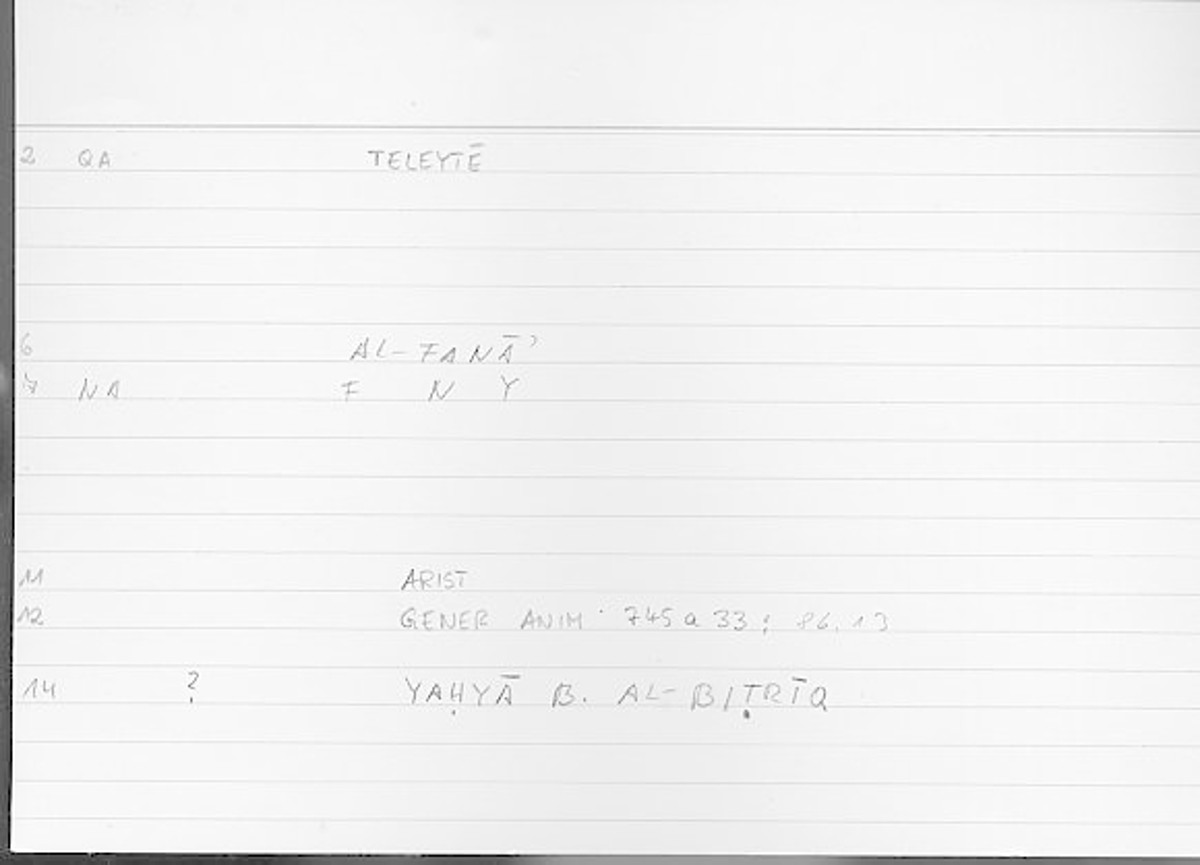 2 QA TELEYTĒ
6 AL-FANĀʾ
7 NA F N Y
11 ARIST
12 GENER ANIM 745 a 33; 86.13
14 ? YAḤYĀ B. AL-BIṬRĪQ